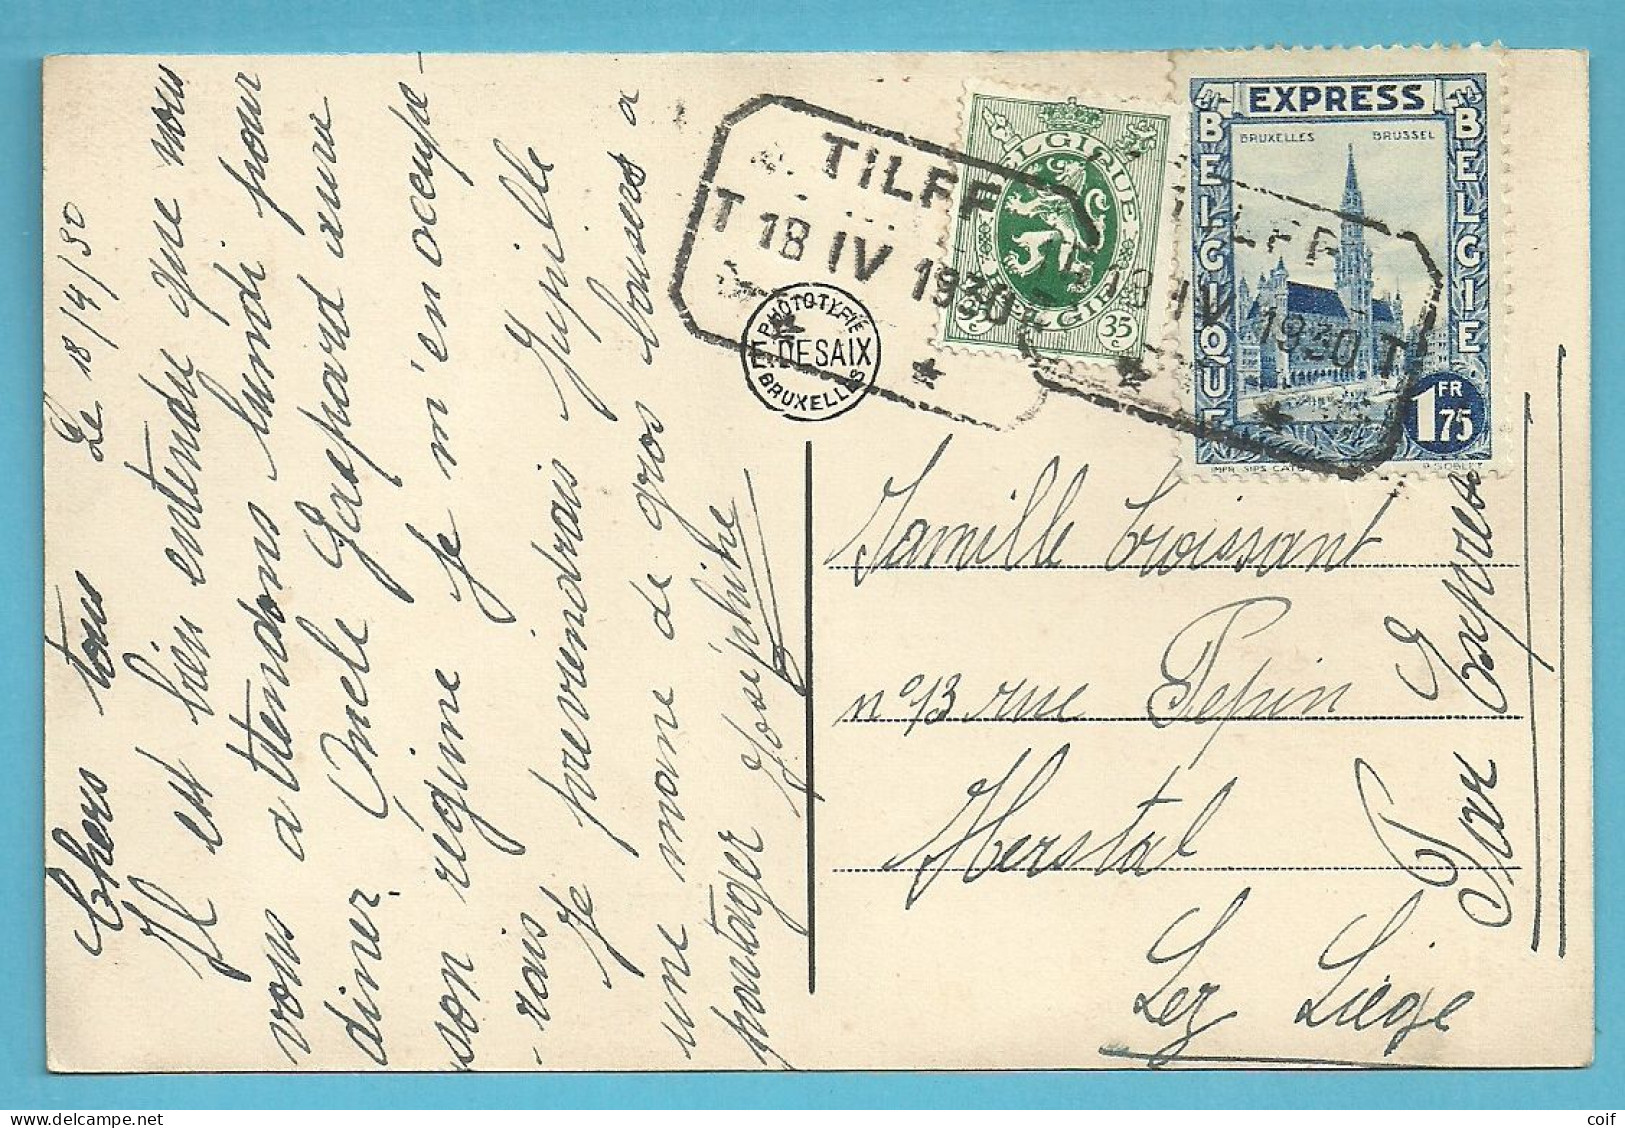 Le 18/4/30
Chers tous
Il est bien entendu que nous
vous attendons lundi pour
diner. Oncle Gaspard aura
son régime je m'en occupe-
-rais
Je previendrais Jupille
une mame de gros bouses a
poutager Joséphine
TILFF
T 18 IV 1930
PHOTOTYPIE
E. DESAIX
BRUXELLES
BELGIQUE
BELGIE
35 c
TILFF
18 IV 1930 T
EXPRESS
BRUXELLES BRUSSEL
BELGIQUE
BELGIE
1 FR 75
IMPR. SIPS
Famille Croissant
n° 13 rue Pepin
Herstal
Lez Liége
Par Exprès
coif